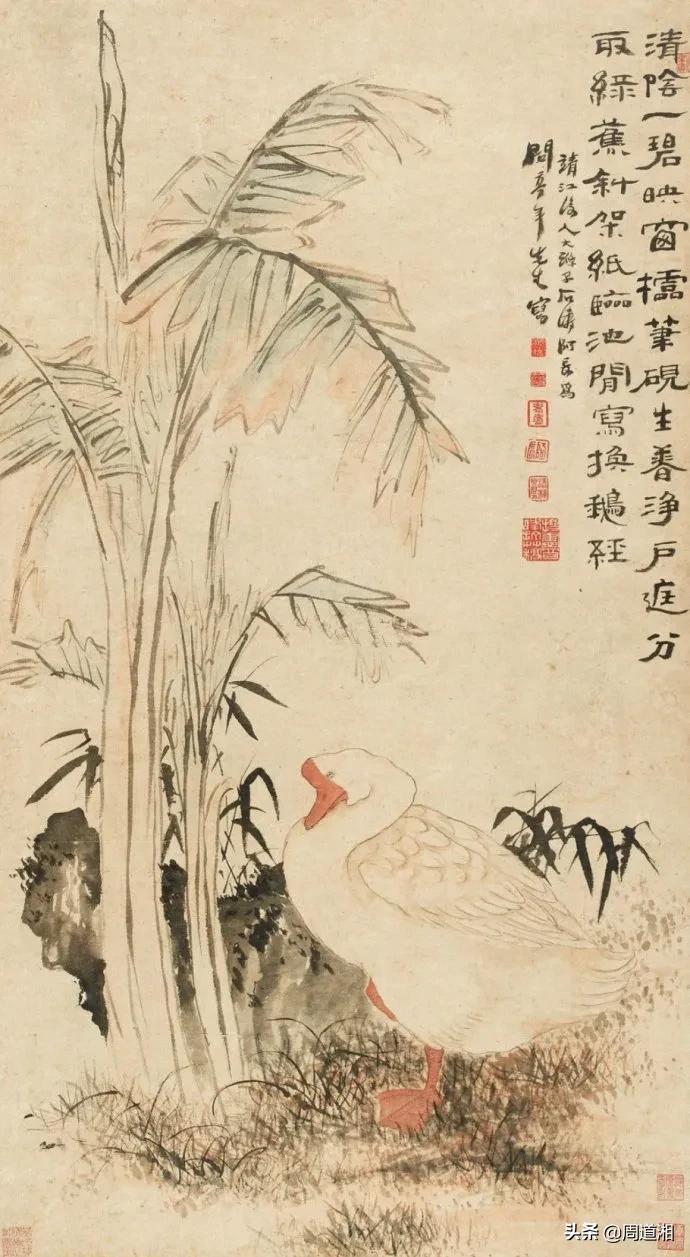 清陰一碧映窗櫺筆硯生香淨戶庭分
取綠蕉斜架紙臨池閒寫換鵝經
靖江後人大滌子石濤阿長為
問亭年先生寫
头条 @周道湘